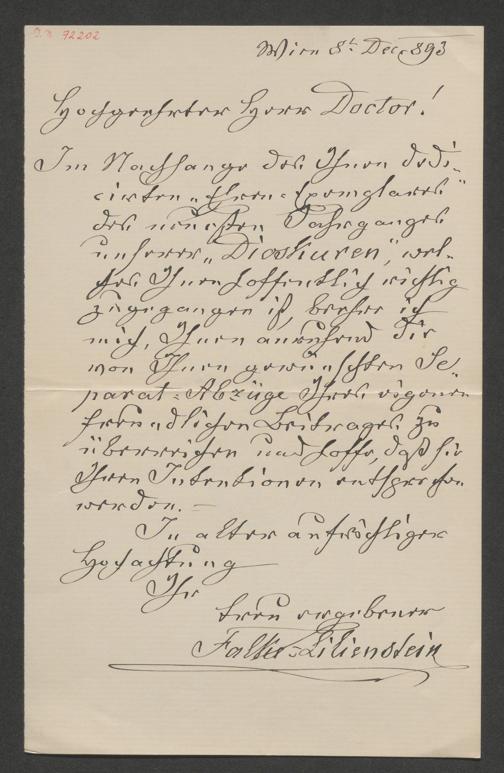 I.N. 92202
Wien 8t. Dec. 893
Hochgeehrter Herr Doctor!
Im Nachhange des Ihnen dedi-
cirten „Ehren-Exemplares"
des neuesten Jahrganges
unserer „Dioskuren", wel-
ches Ihnen hoffentlich richtig
zugegangen ist, beehre ich
mich, Ihnen anruhend die
von Ihnen gewünschten Se-
parat-Abzüge Ihres eigenen
freundlichen Beitrages zu
überreichen und hoffe, daß sie
Ihren Intentionen entsprechen
werden. –
In alter aufrichtiger
Hochachtung
Ihr
treu ergebener
Falke-Lilienstein